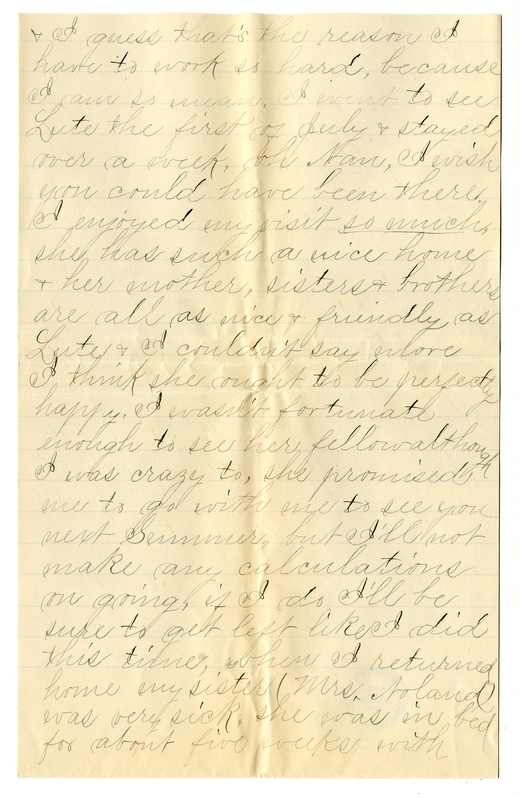 & I guess that's the reason I
have to work so hard, because
I am so mean. I went to see
Lute the first of July & stayed
over a week, oh Nan, I wish
you could have been there,
I enjoyed my visit so much,
she has such a nice home
& her mother, sisters & brothers
are all as nice & friendly as
Lute & I couldn't say more
I think she ought to be perfectly
happy. I wasn't fortunate
enough to see her fellow although
I was crazy to, she promised
me to go with me to see you
next Summer, but I'll not
make any calculations
on going, if I do I'll be
sure to get left like I did
this time, when I returned
home my sister (Mrs. Noland)
was very sick, she was in bed
for about five weeks with